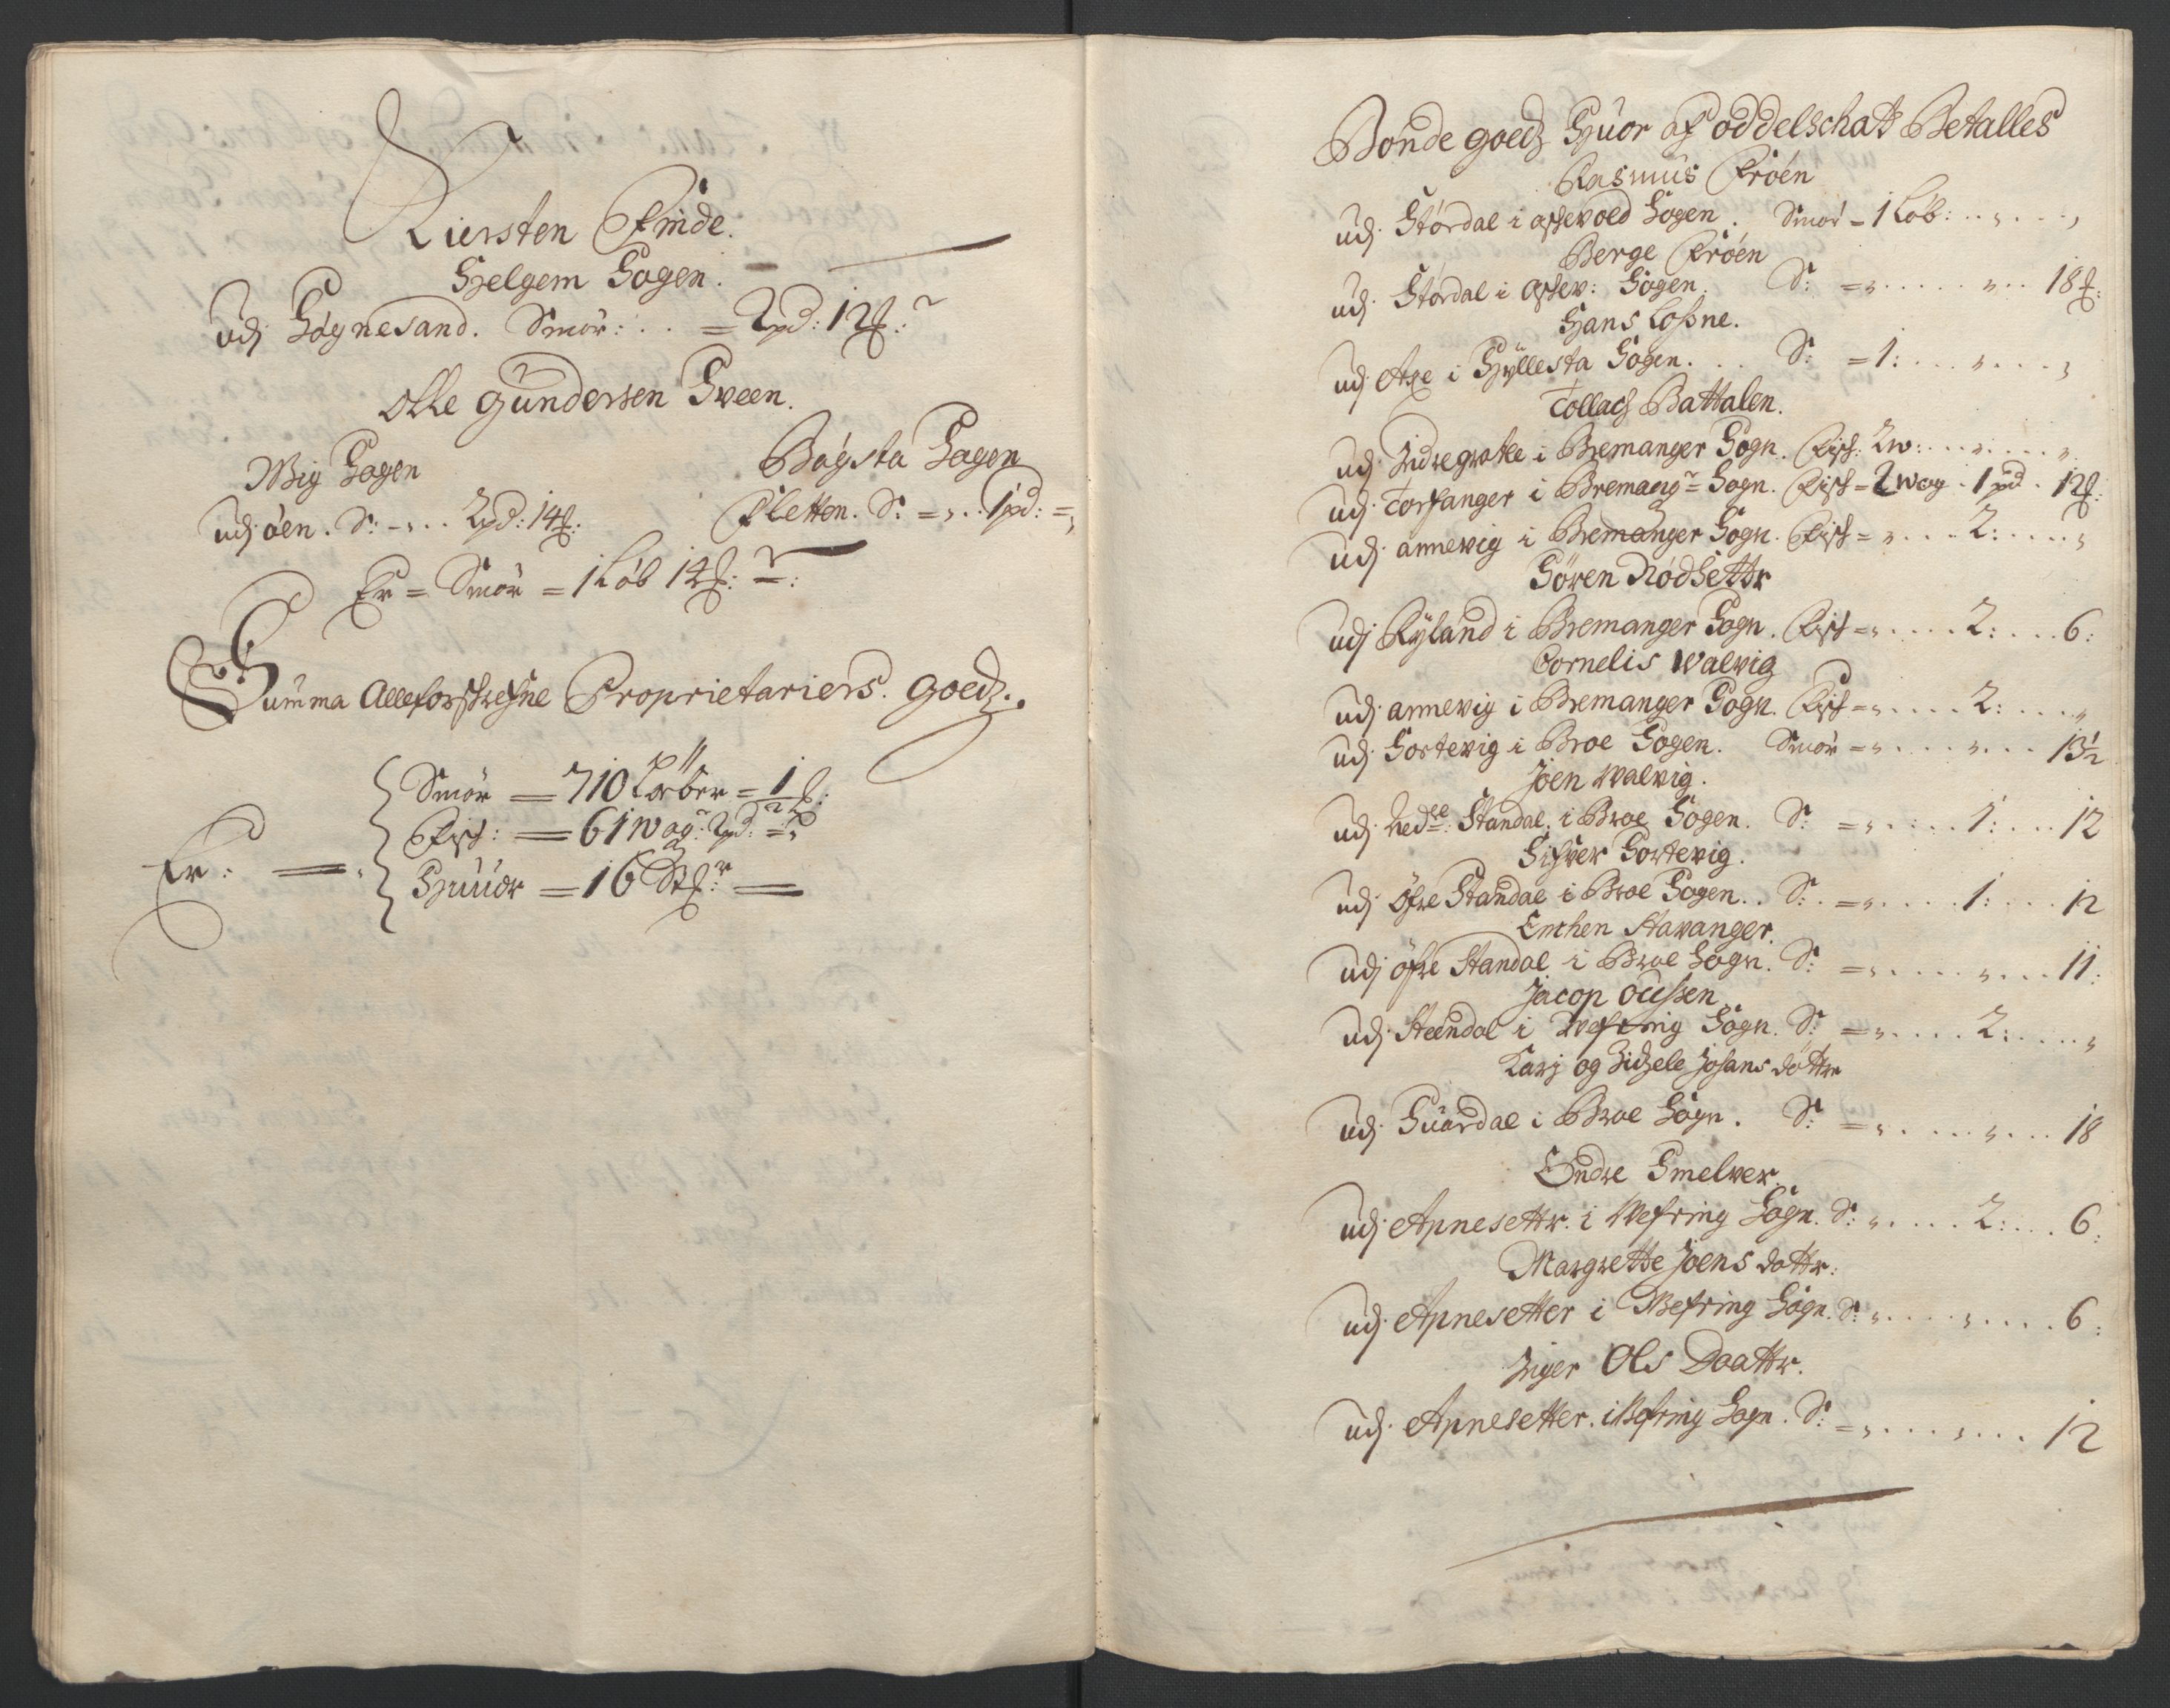 Kiersten Finde.
Helgem Sogen.
udj Søgnesand. Smör: . . = 2pd: 12 ℔:
Olle Gundersen Sveen.
Wig Sogen
udj öen. S: - „ . . 2pd: 14 ℔:
Bögsta Sogen
Fletten. S: = „ . . 1pd: = „
Er = Smör = 1 Löb 14 ℔: = :
Summa Alleforschrefne Proprietariers. Goedz.
Er: =
Smör = 710 Löber = 1/2 ℔:
Fisch: = 61 wog: 2pd: = „
Huuder = 16 Stchr: =
Bonde goedz Huor af oddelschatt Betalles
Rasmus Fröen
udj Stördal i Aschevold Sogen. Smör = 1 Löb: . . „ . . . „
Berge Fröen
udj Stördal i Aschev: Sogen. S: = „ . . . . . „ . . 18 ℔:
Hans Losne.
udj Axe i Hyllesta Sogen. . . S: = 1: . . . „ . . . . „
Tollach Battalen.
udj Indregrotle i Bremanger Sogn. Fisch: 2w: . . . „ . . . . „
udj Torschanger i Bremangr Sogn. Fisch = 2 wog . 1 pd . 12 ℔:
udj annevig i Bremanger Sogn. Fisch = „ . . . . 2: . . . . „
Sören Nödsettr
udj Ryland i Bremanger Sogn. Fisch = „ . . . . 2: . . . 6:
Cornelis Walvig
udj annevig i Bremanger Sogn. Fisch = „ . . . . 2: . . . „
udj Sortevig i Broe Sogen. Smör = „ . . . . „ . . . 13½
Joen Walvig.
udj Nedre: Standal i Broe Sogen. S: = „ . . . . 1: . . . 12
Sifver Sortevig.
udj Öfre Standal i Broe Sogen. . S: . = „ . . . . 1: . . . 12
Enchen Stavanger.
udj öfre Standal i Broe Sogn. S: = „ . . . . „ . . . 11:
Jacop Oelssen
udj Steendal i Wefring Sogn. S: = „ . . . . 2: . . . . „
Karj og Sidzele Johans döttre
udj Guördal i Broe Sogn. S: = „ . . . . „ . . . 18
Endre Smelver.
udj Apnesettr. i Wefring Sogn. S: „ . . . . 2: . . . 6:
Margrette Joens dottr:
udj Apnesetter i Wefring Sogn. S: „ . . . . „ . . . . 6:
Inger Ols Daattr.
udj Apnesetter. i Wefring Sogn. S: = „ . . . . „ . . . 12